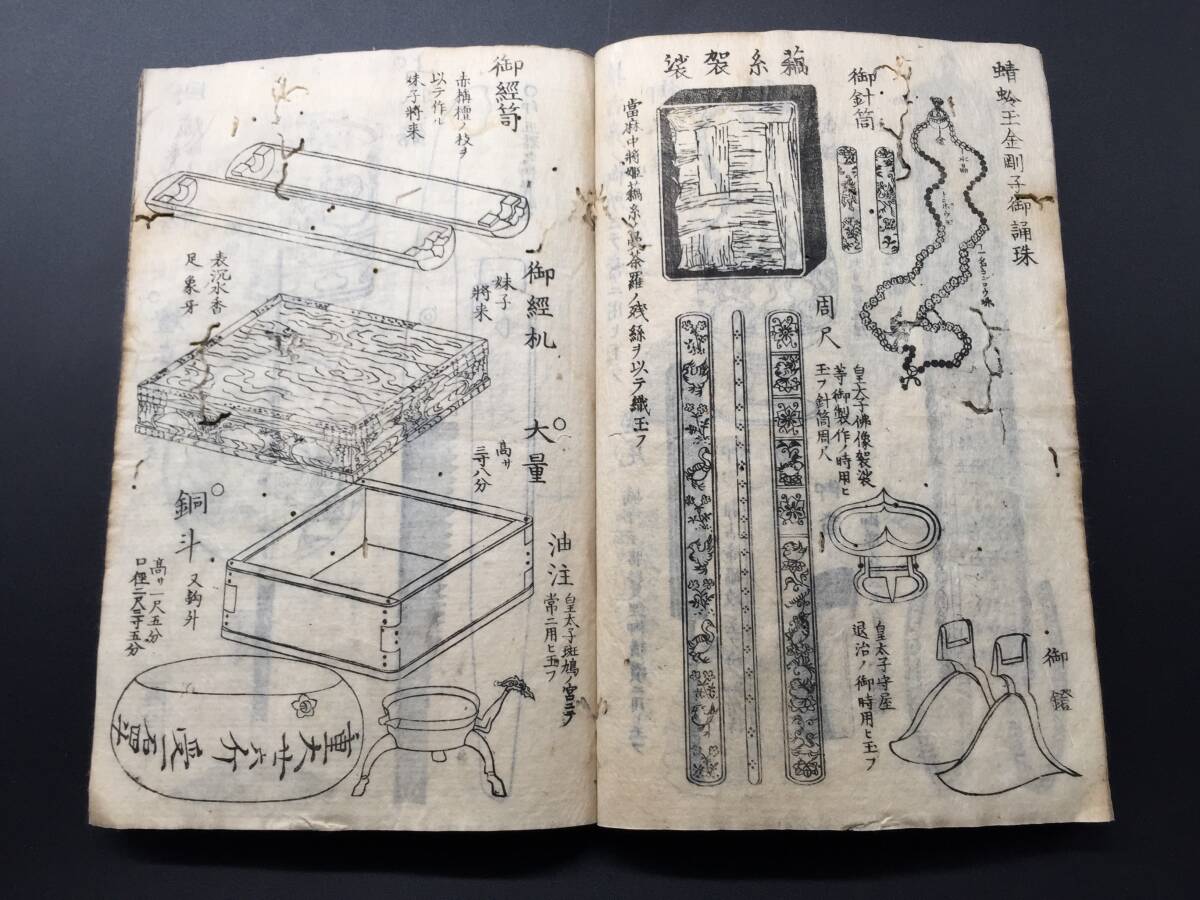 蜻蛉玉金剛子御誦珠
水晶
御針筒
藕糸袈裟
當麻中将姫藕糸曼荼羅ノ残絲ヲ以テ織玉フ
周尺
皇太子佛像袈裟
等御製作ノ時用ヒ
玉フ針筒周尺
御鐙
皇太子守屋
退治ノ御時用ヒ玉フ
御經筒
赤栴檀ノ枝ヲ
以テ作ル
妹子將来
御經机
妹子
將来
表沉水香
足象牙
大量
高サ
三寸八分
油注
皇太子斑鳩ノ宮ニテ
常ニ用ヒ玉フ
銅斗
又鈎斗
高サ一尺五分
口徑二尺三寸五分
重大廿六斤受一石四斗